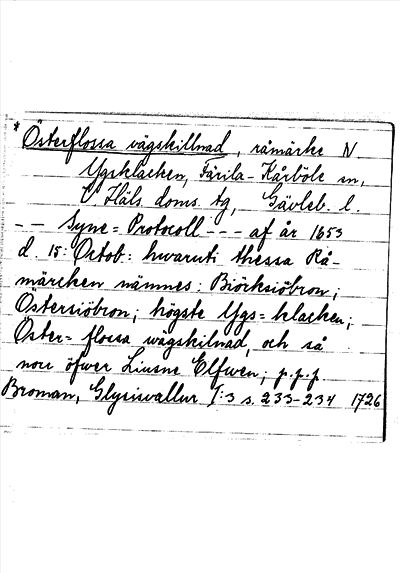 *Österflossa vägskillnad, råmärke N
Ygsklacken, Färila-Kårböle sn,
V Häls. doms. tg, Gävleb. l.
-- Syne=Protocoll --- af år 1653
d. 15: Octob: hwaruti thessa Rå-
märcken nämnes: Biörksiöbron;
Östersiöbron; högste Ygs=klacken;
Öster=flossa wägskilnad, och så
norr öfwer Liusne Elfwen; p.p.p.
Broman, Glysisvallur I:3 s. 233-234 1726